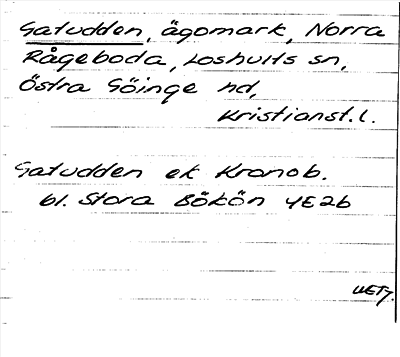 Gatudden, ägomark, Norra
Rågeboda, Loshults sn,
Östra Göinge hd,
Kristianst. l.
Gatudden ek Kronob.
bl. Stora Bökön 4E2b